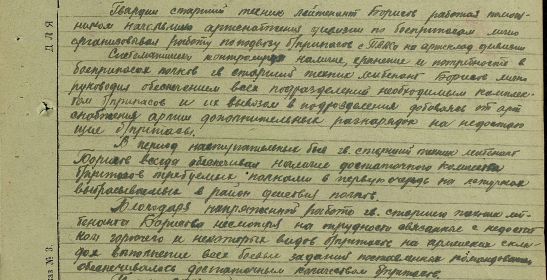 Гвардии старший техник лейтенант Борисов работая помощ-
ником начальника артснабжения дивизии по боеприпасам лично
организовывал работу по подвозу б/припасов с на артсклад дивизии
Систематически контролируя наличие, хранение и потребность в
боеприпасах полков гв. старший техник лейтенант Борисов лично
руководил обеспечением всех подразделений необходимым комплек-
том б/припасов и их вывозом в подразделения добиваясь от арт
снабжения армии дополнительных разнарядок на недостаю-
щие б/припасы.
В период наступательных боев гв. старший техник лейтенант
Борисов всегда обеспечивал наличие достаточного количества
б/припасов требуемых полками в первую очередь на летучках
выбрасываемых в район действия полков.
Благодаря напряженной работе гв. старшего техник лей-
тенанта Борисова несмотря на трудности связанные с недостат-
ком горючего и некоторых видов б/припасов на армейских скла-
дах выполнение всех боевых задания поставленных командованием
обеспечивалось достаточным количеством б/припасов.
ДЛЯ
аз № 3.